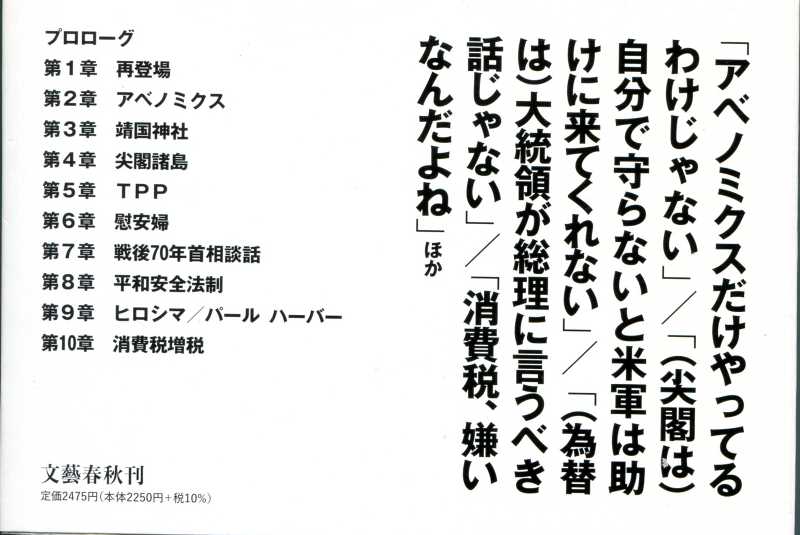 「アベノミクスだけやってる
わけじゃない」／「（尖閣は）
自分で守らないと米軍は助
けに来てくれない」／「（為替
は）大統領が総理に言うべき
話じゃない」／「消費税、嫌い
なんだよね」ほか
プロローグ
第1章　再登場
第2章　アベノミクス
第3章　靖国神社
第4章　尖閣諸島
第5章　TPP
第6章　慰安婦
第7章　戦後70年首相談話
第8章　平和安全法制
第9章　ヒロシマ／パール ハーバー
第10章　消費税増税
文藝春秋刊
定価2475円（本体2250円＋税10%）